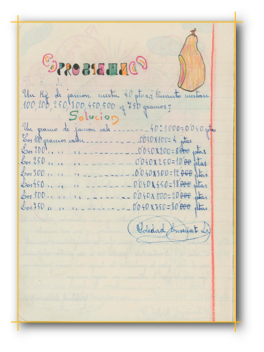 PROGRAMADO
Un Kg de jamon cuesta 40 ptas ¿Cuanto costaran
100, 200, 250, 300, 450, 500 y 750 gramos?
Solucion
Un gramo de jamon vale 40:1000=0'040 ptas
Los 100 gramos valen 0'040X100= 4 ptas
Los 200 " " " 0'040X200= 8 ptas
Los 250 " " " 0'040X250=10 ptas
Los 300 " " " 0'040X300=12 ptas
Los 450 " " " 0'040X450=18 ptas
Los 500 " " " 0'040X500=20 ptas
Los 750 " " " 0'040X750=30 ptas
Soledad